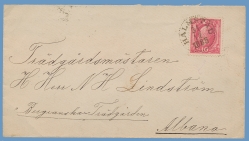 Trädgårdsmästaren
H Herr N H Lindström
Bergianska Trädgården
Albano